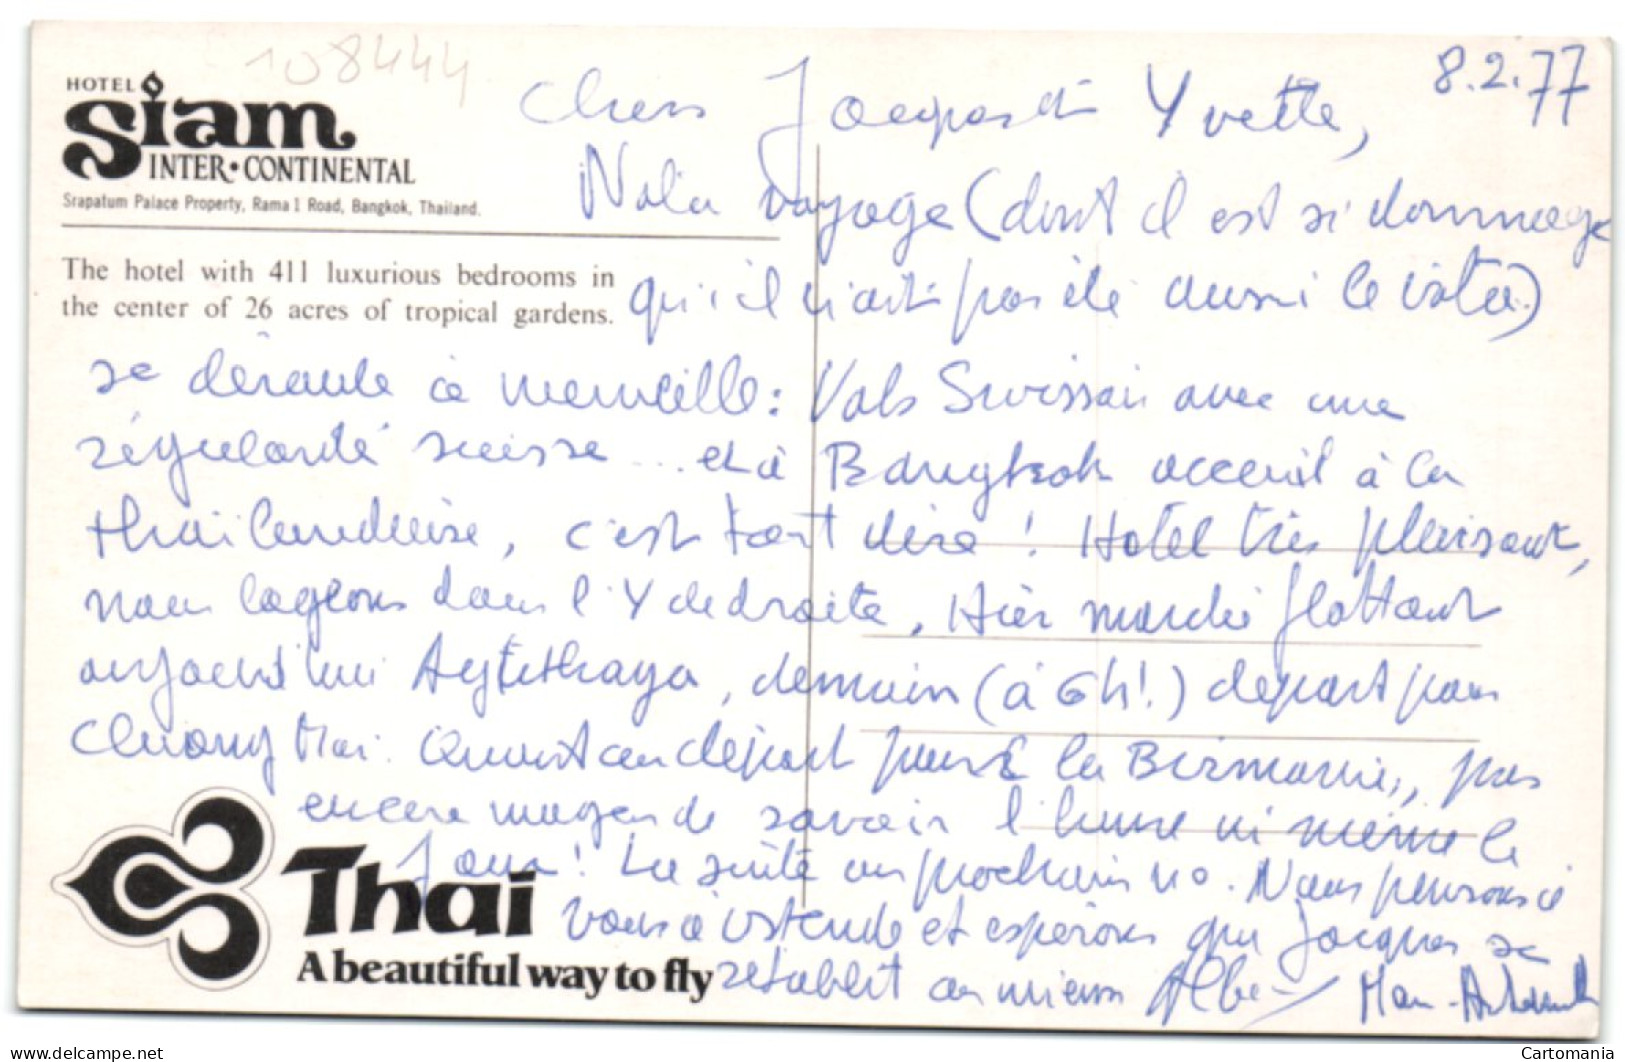 108444
8.2.77
HOTEL
Siam
INTER•CONTINENTAL
Srapatum Palace Property, Rama 1 Road, Bangkok, Thailand.
The hotel with 411 luxurious bedrooms in
the center of 26 acres of tropical gardens.
Chers Jacques et Yvette,
voyage (dont il est si dommage
qu'il n'ait pas été aussi le vôtre)
se déroule à merveille : Vols Swissair avec une
régularité suisse ... et à Bangkok acceuil à la
thaïlandaise, c'est tout dire ! Hotel très plaisant,
nous logeons dans l'Y de droite. Hier marché flottant
aujourd'hui Ayuthaya, demain (à 6h!) départ pour
Chiang Mai. Quant au départ pour la Birmanie, pas
encore moyen de savoir l'heure ni même le
jour ! La suite au prochain no. Nous pensons à
vous à Ostende et espérons que Jacques se
rétablit au mieux
Thai
A beautiful way to fly
Cartomania